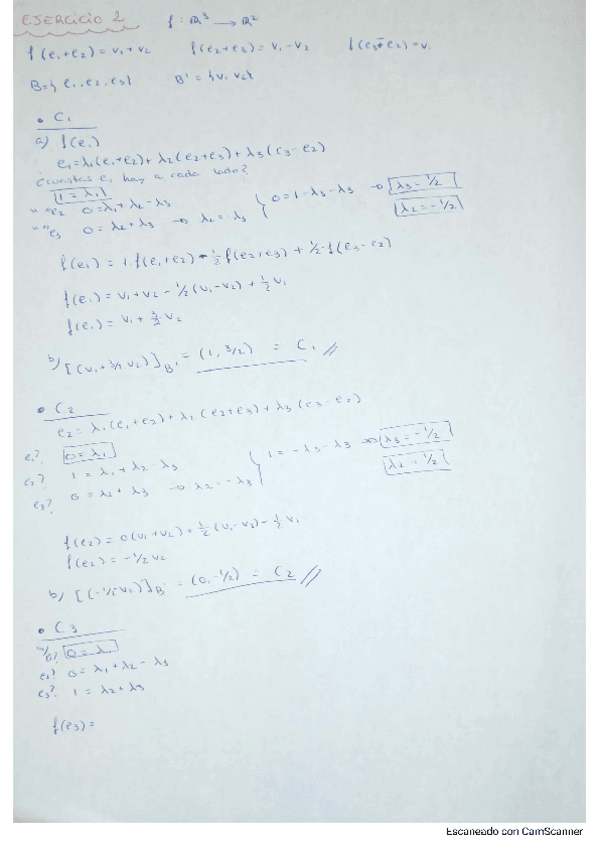 EJERCICIO 2 f: ℝ³ → ℝ²
f(e₁+e₂) = v₁+v₂ f(e₂+e₃) = v₁-v₂ f(e₃-e₂) = v₁
B={ e₁, e₂, e₃} B' = {v₁ v₂}
• C₁
a) f(e₁)
e₁=λ₁(e₁+e₂)+ λ₂(e₂+e₃)+λ₃(e₃-e₂)
¿cuantas e₁ hay a cada lado?
1 = λ₁
" " e₂ 0=λ₁+λ₂-λ₃ { 0=1-λ₃-λ₃ → λ₃=1/2
" " e₃ 0=λ₂+λ₃ → λ₂=-λ₃ λ₂=-1/2
f(e₁) = 1·f(e₁+e₂) - 1/2 f(e₂+e₃) + 1/2·f(e₃-e₂)
f(e₁) = v₁+v₂ - 1/2(v₁-v₂) + 1/2 v₁
f(e₁) = v₁ + 3/2 v₂
b) [(v₁+3/2 v₂)]B' = (1, 3/2) = C₁ //
• C₂
e₂ = λ₁(e₁+e₂)+λ₂(e₂+e₃)+λ₃(e₃-e₂)
e₁? 0=λ₁
e₂? 1=λ₁+λ₂-λ₃ { 1=-λ₃-λ₃ → λ₃=-1/2
e₃? 0=λ₂+λ₃ → λ₂=-λ₃ λ₂=1/2
f(e₂) = 0(v₁+v₂)+1/2(v₁-v₂)-1/2 v₁
f(e₂) = -1/2 v₂
b) [(-1/2 v₂)]B' = (0,-1/2) = C₂ //
• C₃
a)
0=λ₁
e₂? 0=λ₁+λ₂-λ₃
e₃? 1=λ₂+λ₃
f(e₃) =
Escaneado con CamScanner